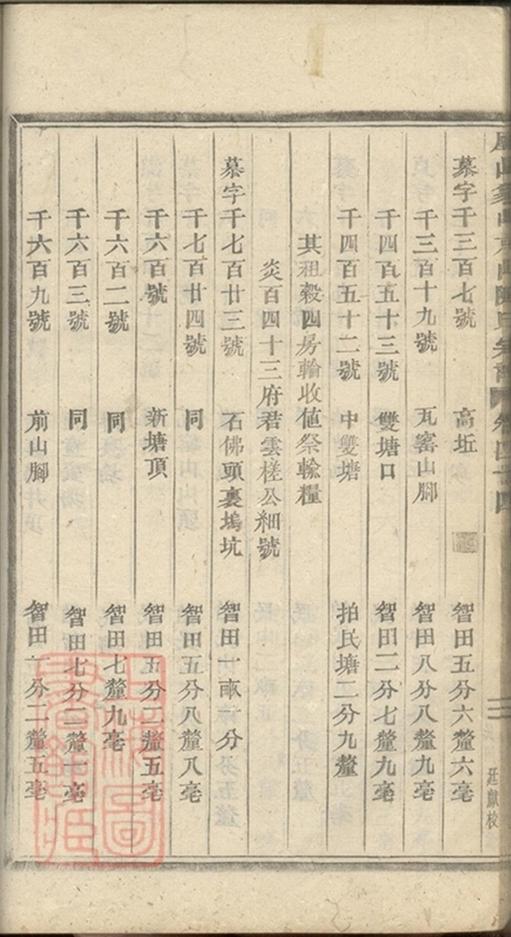 慕字千三百七號　高坵　智田五分六釐六毫
千三百十九號　瓦窰山腳　智田八分八釐九毫
千四百五十三號　雙塘口　智田二分七釐九毫
千四百五十二號　中雙塘　拍氏塘二分九釐
其祖穀四房輪收値祭輸糧
炎百四十三府君雲槎公細號
慕字千七百廿三號　石佛頭裏塢坑　智田一畝一分
千七百廿四號　同　智田五分八釐八毫
千六百號　新塘頂　智田五分二釐五毫
千六百二號　同　智田七釐九毫
千六百三號　同　智田七分二釐一毫
千六百九號　前山腳　智田一分二釐五毫